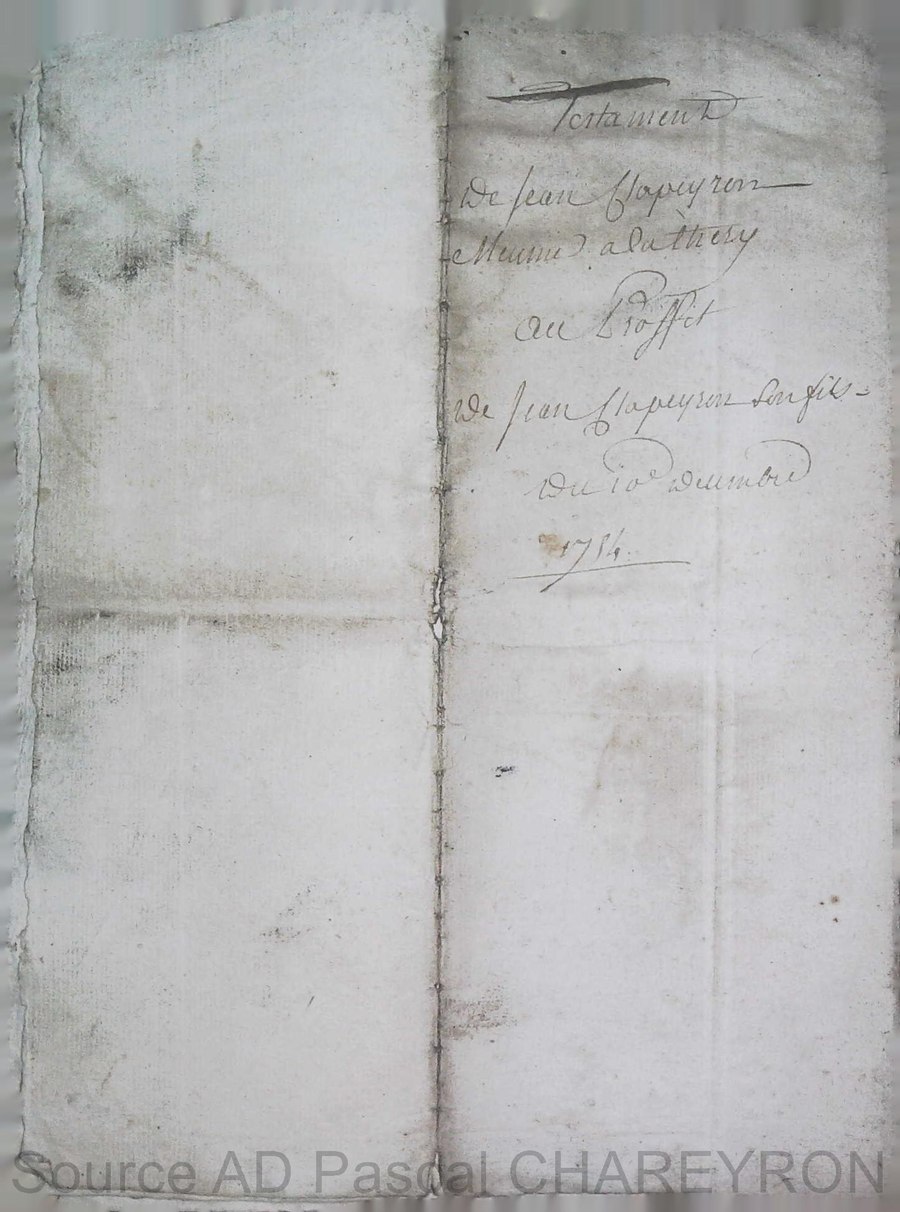 Testament
de Jean Clapeyron
Meunié a la thery
au Proffit
de Jean Clapeyron son fils
du 10e decembre
1754
Source AD Pascal CHAREYRON